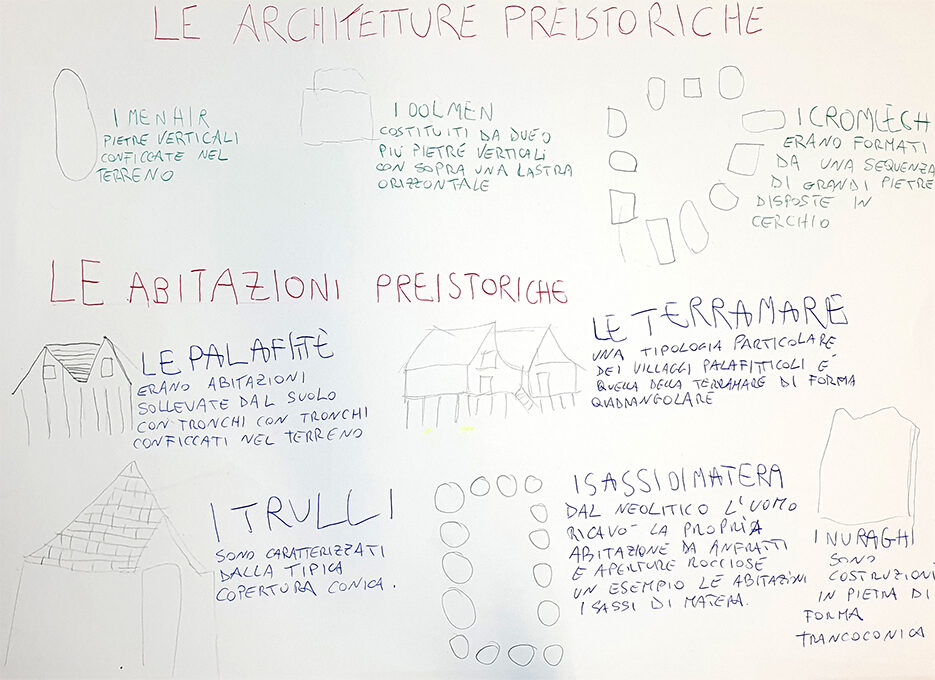 LE ARCHITETTURE PREISTORICHE
I MENHIR
PIETRE VERTICALI
CONFICCATE NEL
TERRENO
I DOLMEN
COSTITUITI DA DUE O
PIÙ PIETRE VERTICALI
CON SOPRA UNA LASTRA
ORIZZONTALE
I CROMLECH
ERANO FORMATI
DA UNA SEQUENZA
DI GRANDI PIETRE
DISPOSTE IN
CERCHIO
LE ABITAZIONI PREISTORICHE
LE PALAFITTE
ERANO ABITAZIONI
SOLLEVATE DAL SUOLO
CON TRONCHI CON TRONCHI
CONFICCATI NEL TERRENO
LE TERRAMARE
UNA TIPOLOGIA PARTICOLARE
DEI VILLAGGI PALAFITTICOLI E'
QUELLA DELLA TERRAMARE DI FORMA
QUADRANGOLARE
I TRULLI
SONO CARATTERIZZATI
DALLA TIPICA
COPERTURA CONICA.
I SASSI DI MATERA
DAL NEOLITICO L'UOMO
RICAVO' LA PROPRIA
ABITAZIONE DA ANFRATTI
E APERTURE ROCCIOSE
UN ESEMPIO LE ABITAZIONI
I SASSI DI MATERA.
I NURAGHI
SONO
COSTRUZIONI
IN PIETRA DI
FORMA
TRANCOCONICA